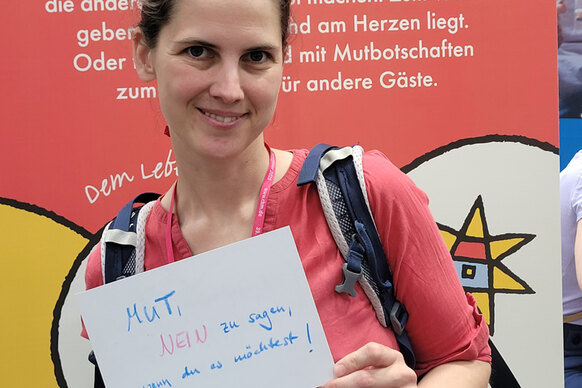 die ande
geben nd am Herzen liegt.
Oder mit Mutbotschaften
zum für andere Gäste.
Dem Leb
MUT,
NEIN zu sagen,
wenn du es möchtest!